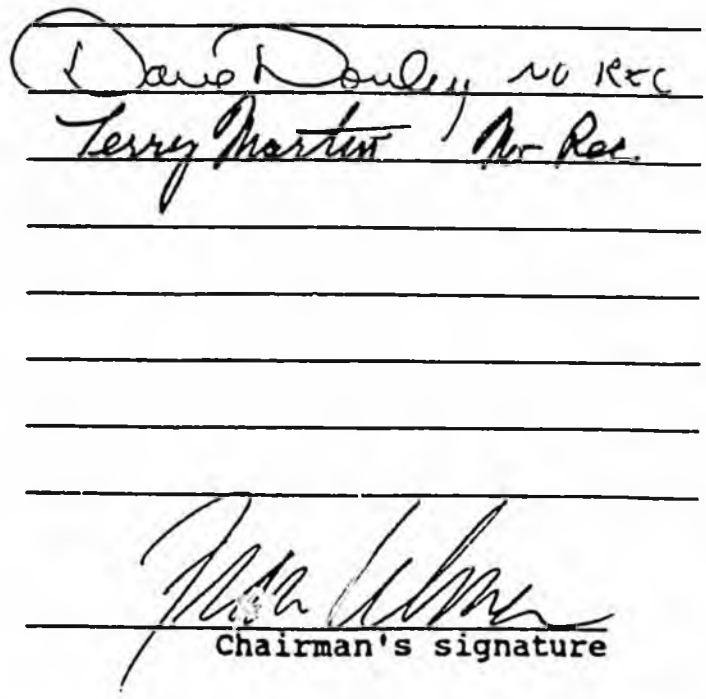 Dave Donley NO REC
Terry Martin No Rec.
Fran Ulmer
Chairman's signature